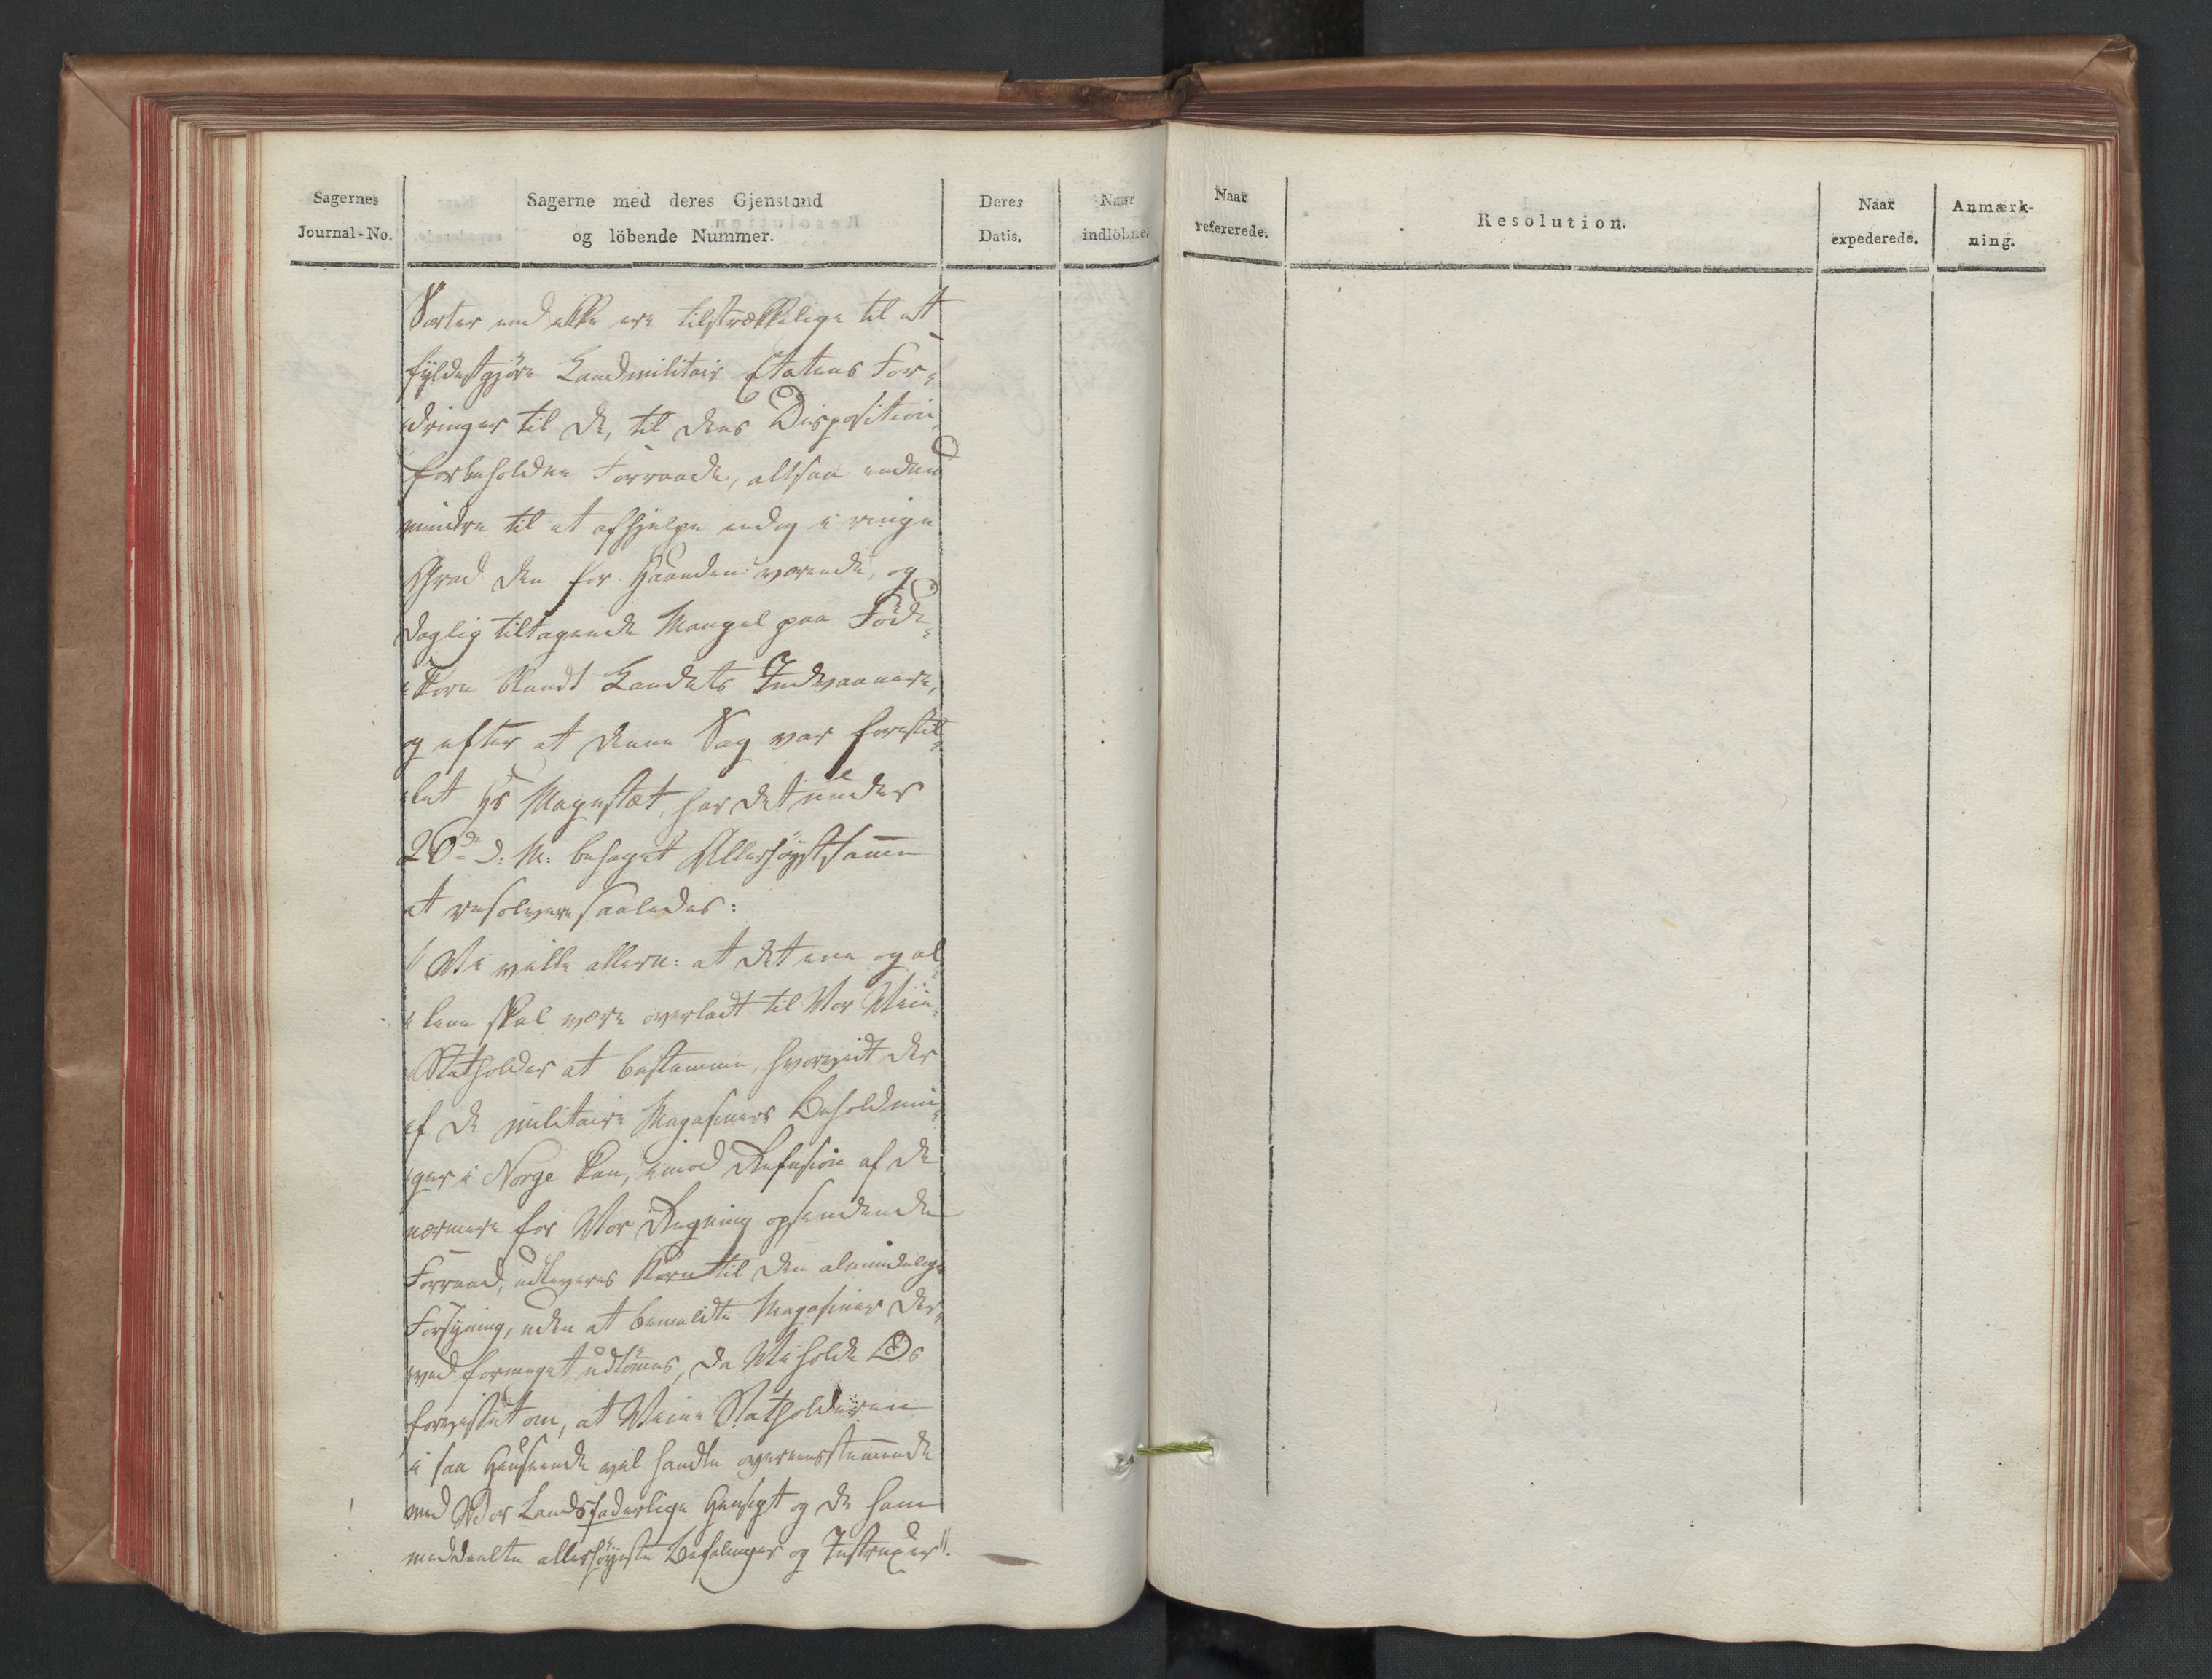 Sagernes
Journal-No.
Sagerne med deres Gjenstand
og löbende Nummer.
Deres
Datis.
Naar
indlöbne.
Naar
refererede.
Resolution.
Naar
expederede.
Anmærk-
ning.
Sorter end ikke ere tilstrækkelige til at
fyldestgjöre Landmilitair Etatens For-
dringer til de, til dens Disposition
forbeholdne Forraade, altsaa endnu
mindre til at afhjelpe endog i ringe
Grad den for Haanden værende, og
daglig tiltagende Mangel paa Föde-
korn blandt Landets Indvaanere,
og efter at denne Sag var forestil-
let Hs Majestæt, har det under
26de d: M: behaget Allerhöystsamme
at resolvere saaledes:
"Vi ville allern: at det ene og al-
"lene skal være overladt til Vor Vice
Statholder at bestemme, hvorvidt der
af de militaire Magasiners Beholdnin-
ger i Norge kan, imod Refusion af de
nærmere for Vor Regning opsendende
Forraad, udleveres Korn til den almindelige
Forsyning, uden at bemeldte Magasiner der-
ved formeget udtömmes, da Vi holde Os
forvisset om, at Vice Statholderen
i saa Henseende vil handle overeensstemmende
med Vor Landsfaderlige Hensigt og de ham
meddeelte allerhöyeste Befalinger og Instruxer".